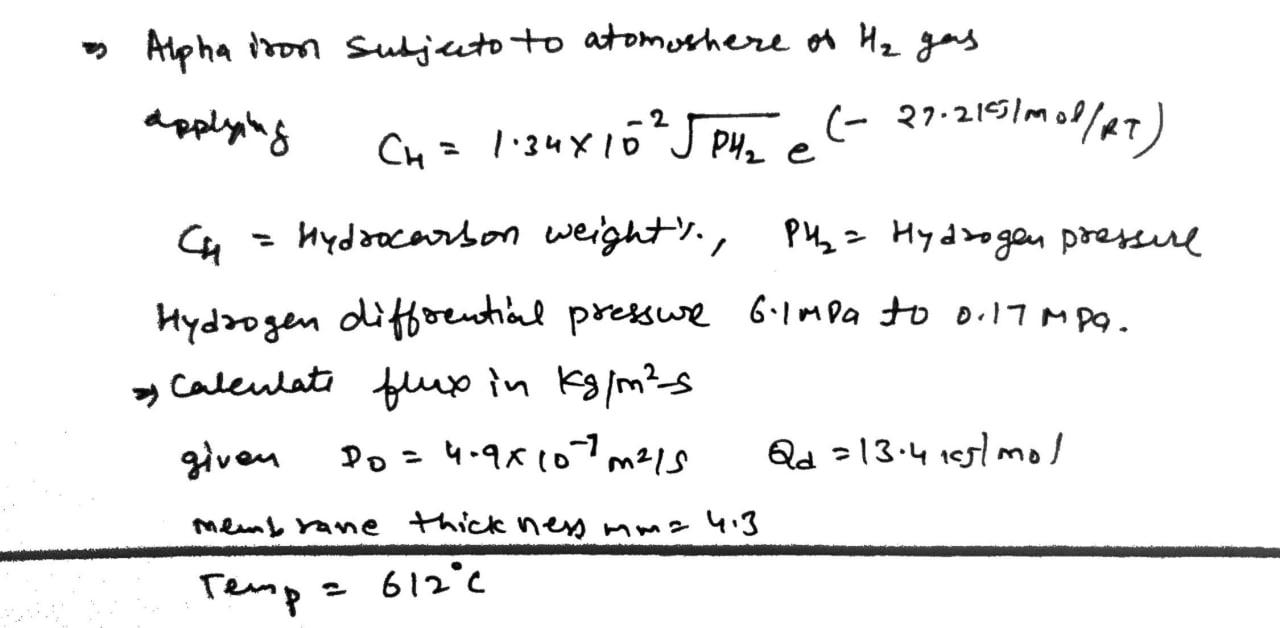 ⇒ Alpha iron Subjecto to atomoshere of H₂ gas
applying C_H = 1.34 × 10⁻² √PH₂ e^(- 27.2 kJ/mol/RT)
C_H = Hydrocarbon weight%, PH₂ = Hydrogen pressure
Hydrogen diffrential pressure 6.1 MPa to 0.17 MPa.
⇒ Calculate flux in Kg/m²-s
given D₀ = 4.9×10⁻⁷ m²/s Qd = 13.4 kJ/mol
membrane thickness mm = 4.3
Temp = 612°C